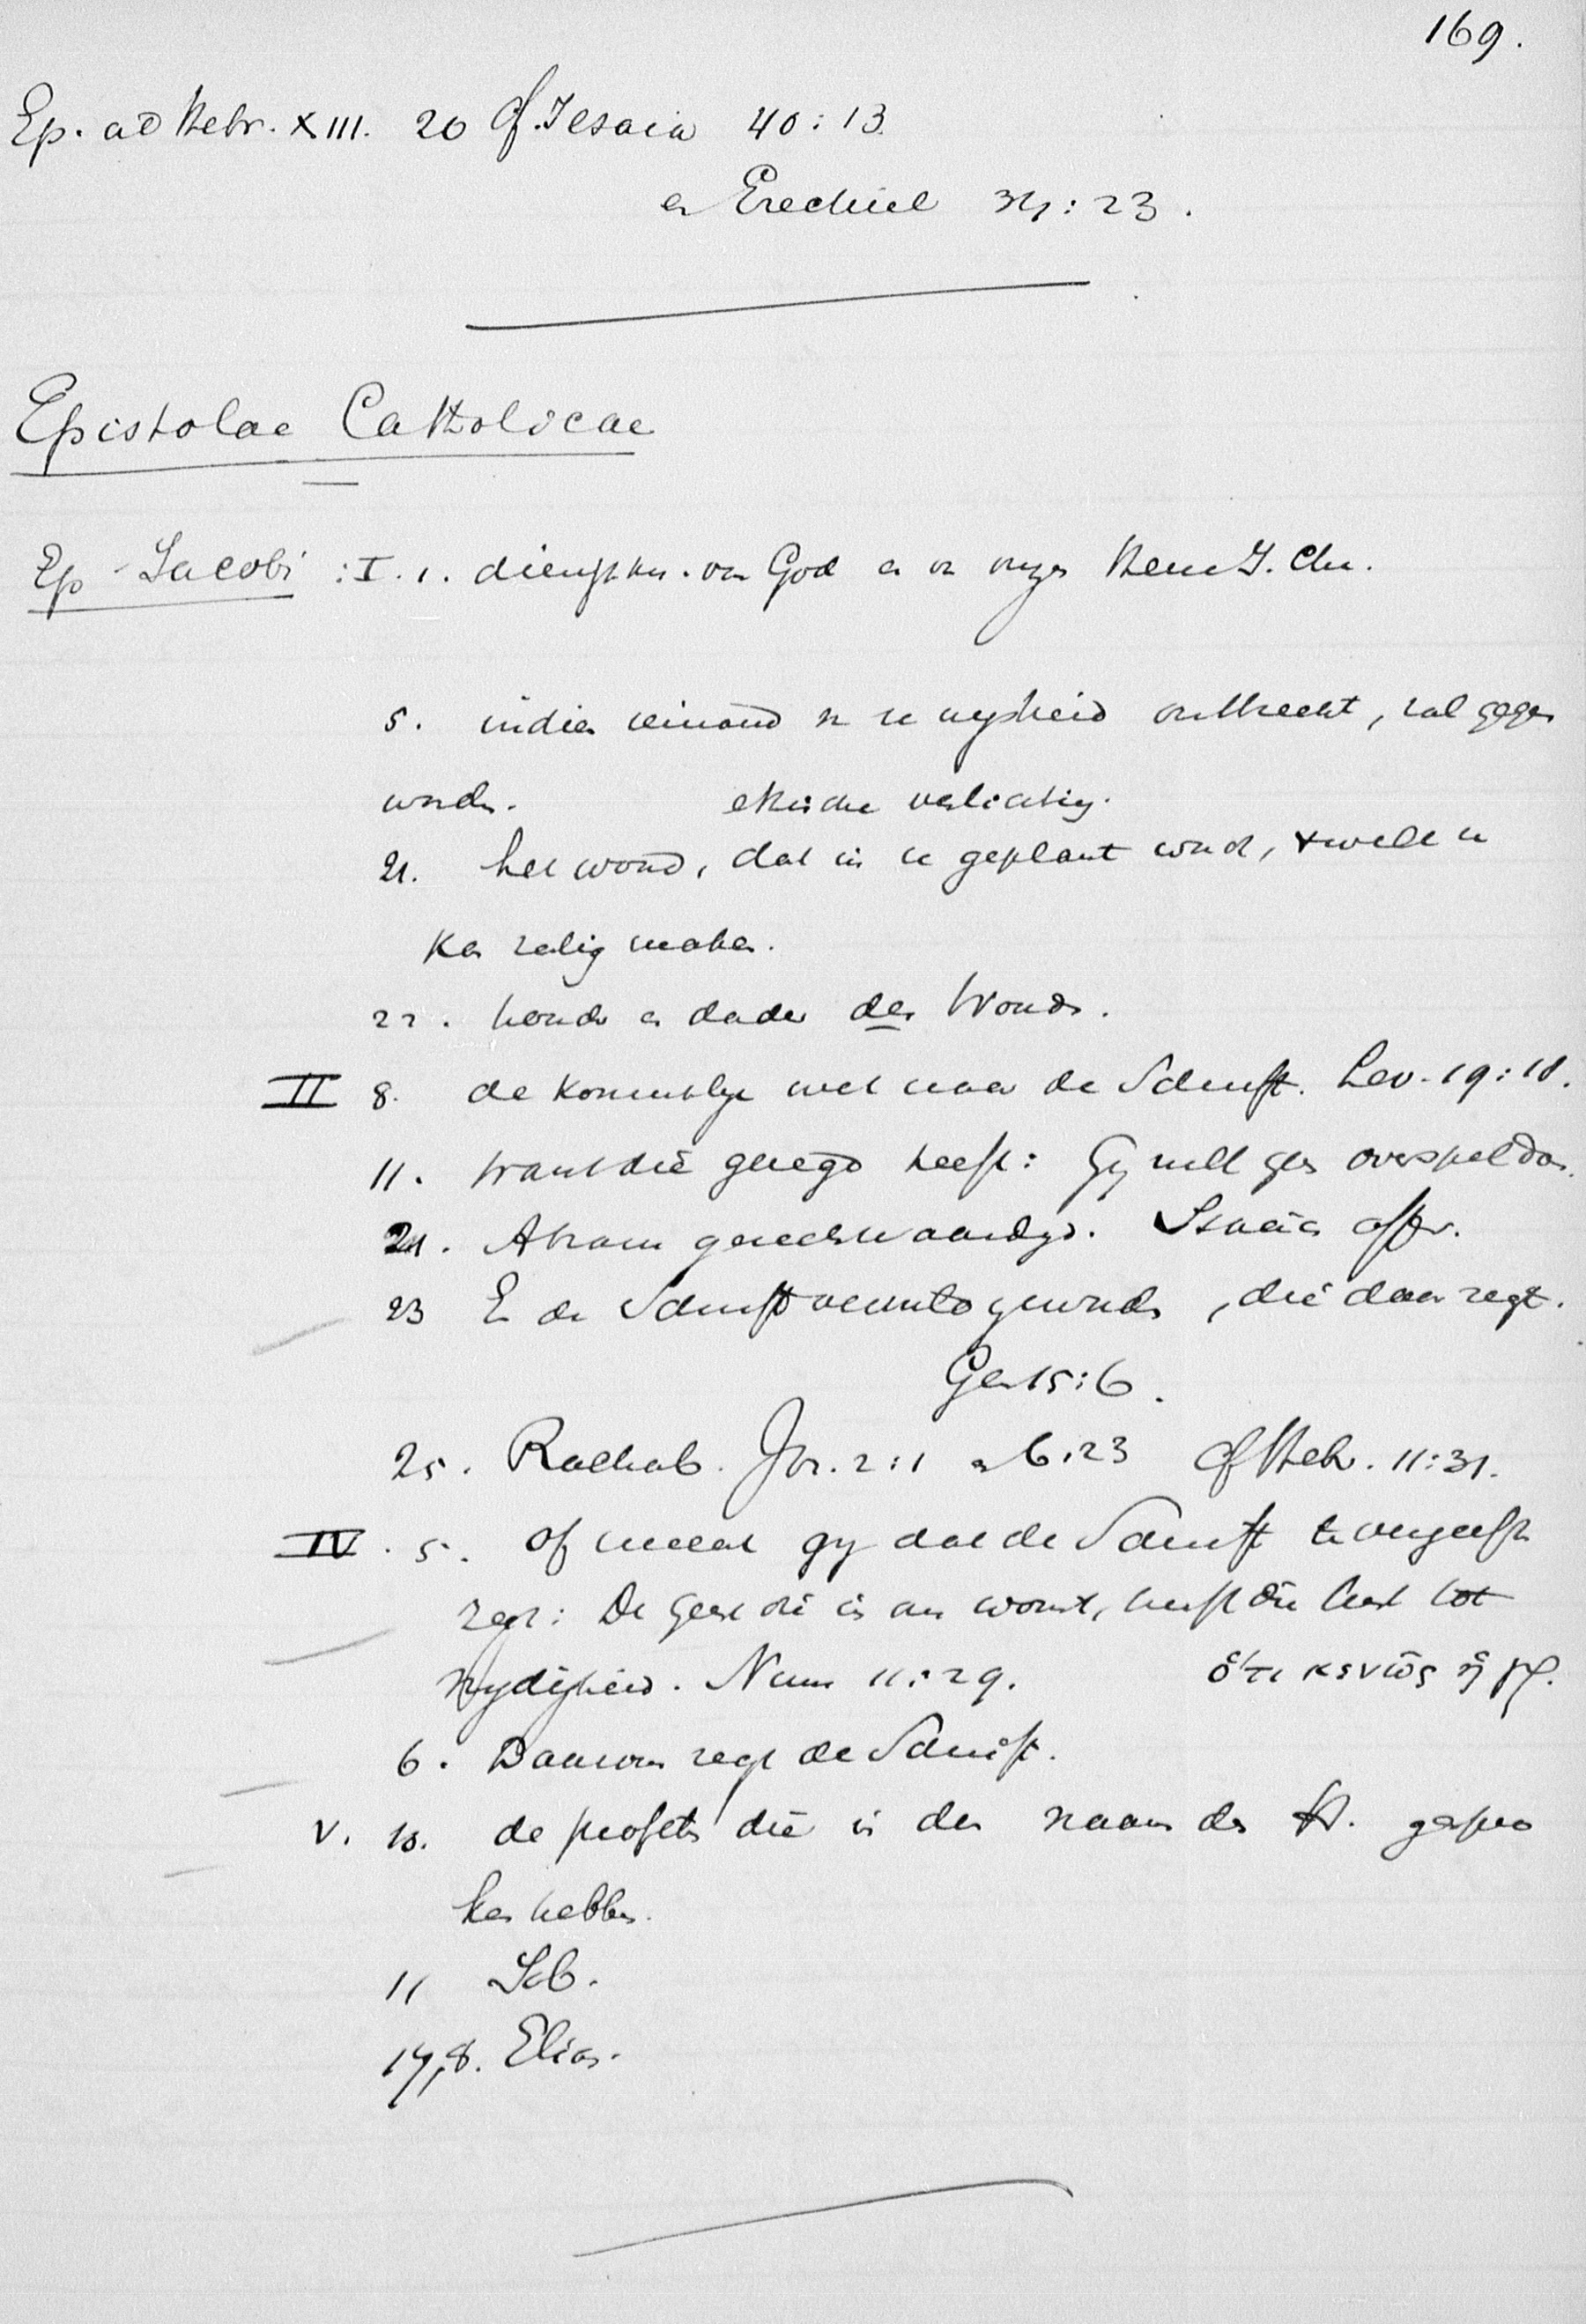 169.
Ep. ad Hebr. XIII. 20 cf. Jesaia 40:13.
en Ezechiel 34:23.
Epistolae Catholicae
Ep. Jacobi : I. 1. dienstkn. van God en van onzen Heere J. Chr.
5. indien iemand van u wijsheid ontbreekt, zal gegeven
worden. ethische verlichting.
21. het woord, dat in u geplant wordt, & welk u
kan zalig maken.
22. hoorders en daders des Woords.
II 8. de koninklijke wet naar de Schrift. Lev. 19:18.
11. Want die gezegd heeft: Gij zult geen overspel doen.
21. Abram gerechtvaardigd. Isaäcs offer.
23 En de Schrift vervuld geworden, die daar zegt.
Gen 15:6.
25. Rachab. Joz. 2:1 en 6:23 cf Hebr. 11:31.
IV. 5. Of meent gij dat de Schrift te vergeefs
zegt: De Geest die in ons woont, heeft die lust tot
nijdigheid. Num 11:29. ὅτι κενῶς ἡ γρ.
6. Daarom zegt de Schrift.
V. 10. de profeten die in den naam des H. gespro
ken hebben.
11 Job.
17,8. Elias.